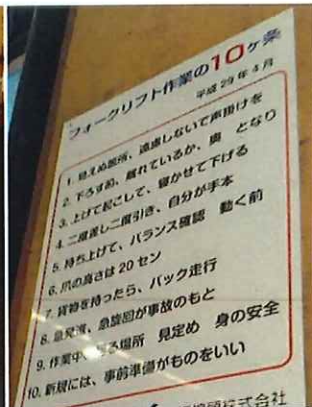 フォークリフト作業の10ヶ条
平成29年4月
1. 見えぬ箇所、遠慮しないで声掛けを
2. 下ろす前、離れているか、奥 となり
3. 上げて起こして、寝かせて下げる
4. 二度差し二度引き、自分が手本
5. 持ち上げて、バランス確認 動く前
6. 爪の高さは20セン
7. 貨物を持ったら、バック走行
8. 急発進、急旋回が事故のもと
9. 作業中 る場所 見定め 身の安全
10. 新規には、事前準備がものをいい
株式会社